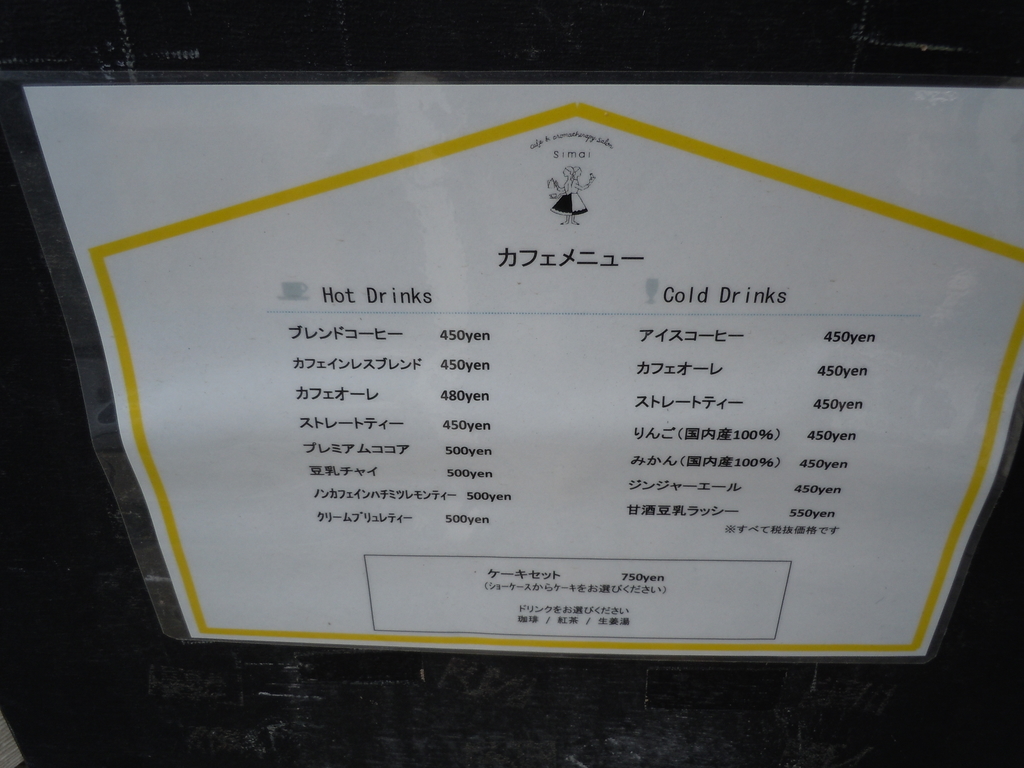 cafe & aromatherapy salon
Simai
カフェメニュー
Hot Drinks
ブレンドコーヒー 450yen
カフェインレスブレンド 450yen
カフェオーレ 480yen
ストレートティー 450yen
プレミアムココア 500yen
豆乳チャイ 500yen
ノンカフェインハチミツレモンティー 500yen
クリームブリュレティー 500yen
Cold Drinks
アイスコーヒー 450yen
カフェオーレ 450yen
ストレートティー 450yen
りんご(国内産100%) 450yen
みかん(国内産100%) 450yen
ジンジャーエール 450yen
甘酒豆乳ラッシー 550yen
※すべて税抜価格です
ケーキセット 750yen
(ショーケースからケーキをお選びください)
ドリンクをお選びください
珈琲 / 紅茶 / 生姜湯